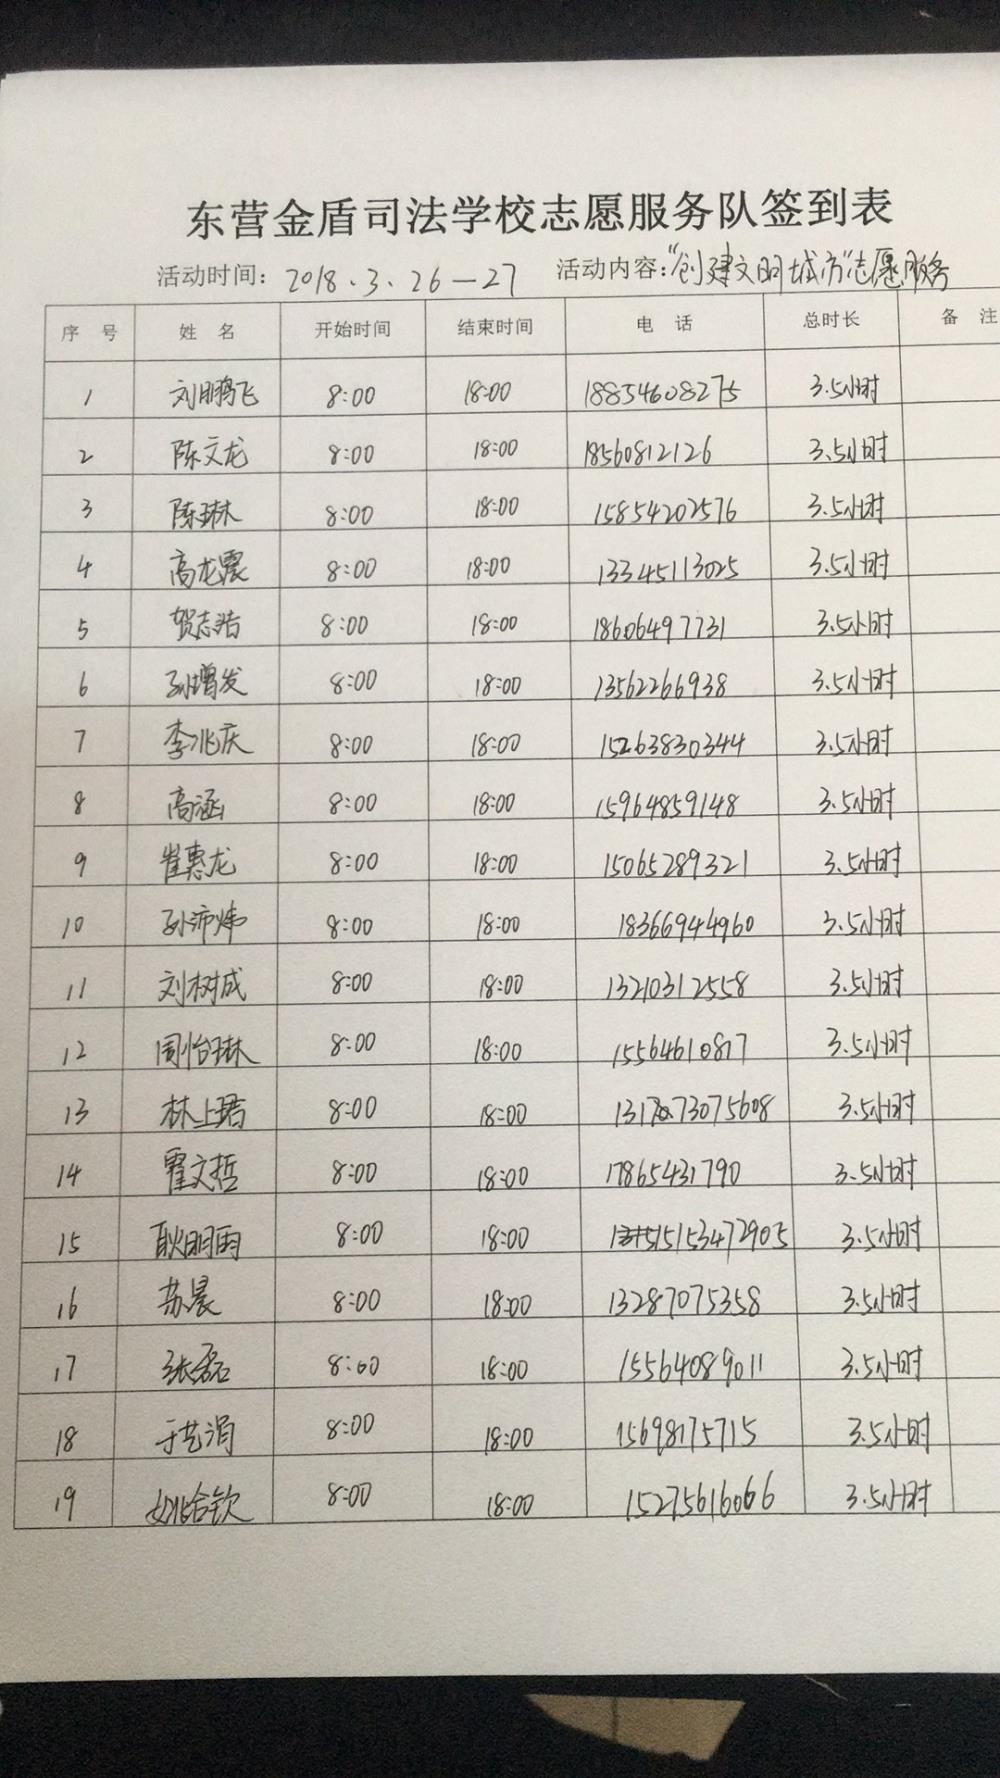 东营金盾司法学校志愿服务队签到表
活动时间：2018.3.26—27 活动内容："创建文明城市"志愿服务
序 号 姓 名 开始时间 结束时间 电 话 总时长 备 注
1 刘鹏飞 8:00 18:00 18854608275 3.5小时
2 陈文龙 8:00 18:00 18560812126 3.5小时
3 陈琳 8:00 18:00 15854202576 3.5小时
4 高龙震 8:00 18:00 13345113025 3.5小时
5 贺志浩 8:00 18:00 18606497731 3.5小时
6 孙增发 8:00 18:00 13562266938 3.5小时
7 李兆庆 8:00 18:00 15263830344 3.5小时
8 高涵 8:00 18:00 15964859148 3.5小时
9 崔惠龙 8:00 18:00 15065289321 3.5小时
10 孙沛炜 8:00 18:00 18366944960 3.5小时
11 刘树成 8:00 18:00 13210312558 3.5小时
12 周怡琳 8:00 18:00 15564610817 3.5小时
13 林上珺 8:00 18:00 3.5小时
14 霍文哲 8:00 18:00 17865431790 3.5小时
15 耿明雨 8:00 18:00 15153472905 3.5小时
16 苏晨 8:00 18:00 13287075358 3.5小时
17 张磊 8:00 18:00 15564089011 3.5小时
18 于艺涓 8:00 18:00 15698175715 3.5小时
19 姚合钦 8:00 18:00 15275616066 3.5小时